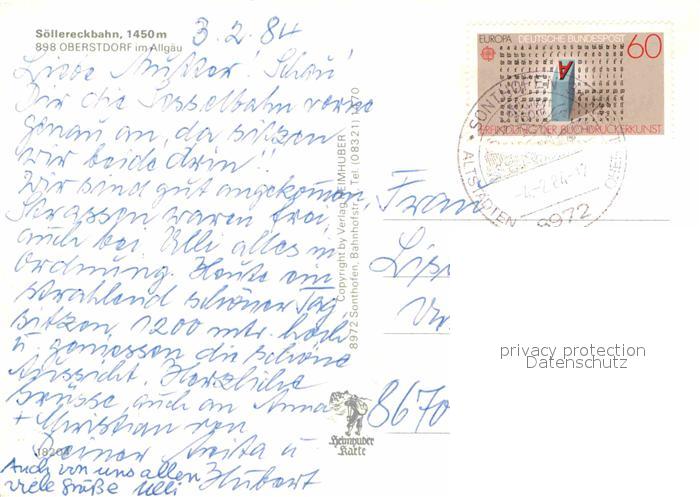 Söllereckbahn, 1450 m
898 OBERSTDORF im Allgäu
3.2.84
Liebe Mutter! Schau'
Dir die Sesselbahn vorne
genau an, da sitzen
wir beide drin!!
Wir sind gut angekommen,
Strassen waren frei,
auch bei Ulli alles in
Ordnung. Heute ein
strahlend schöner Tag,
sitzen 1200 mtr. hoch
u. geniessen die schöne
Aussicht. Herzliche
Grüsse auch an Anna
+ Christian von
Deiner Anita u.
Hubert
Auch von uns allen
viele Grüße Ulli
18204
Copyright by Verlag HEIMHUBER
8972 Sonthofen, Bahnhofstr. Tel. (08321) 1470
Heimhuber
Karte
EUROPA DEUTSCHE BUNDESPOST 60
ERFINDUNG DER BUCHDRUCKERKUNST
SONTHOFEN
ALTSTÄDTEN
8972
Frau
8670
privacy protection
Datenschutz